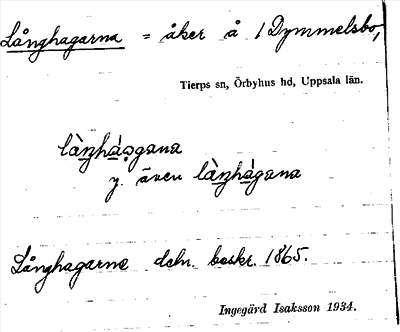 Långhagarna = åker å 1 Dymmelsbo,
Tierps sn, Örbyhus hd, Uppsala län.
y. även
Långhagarne dcln. beskr. 1865.
Ingegärd Isaksson 1934.